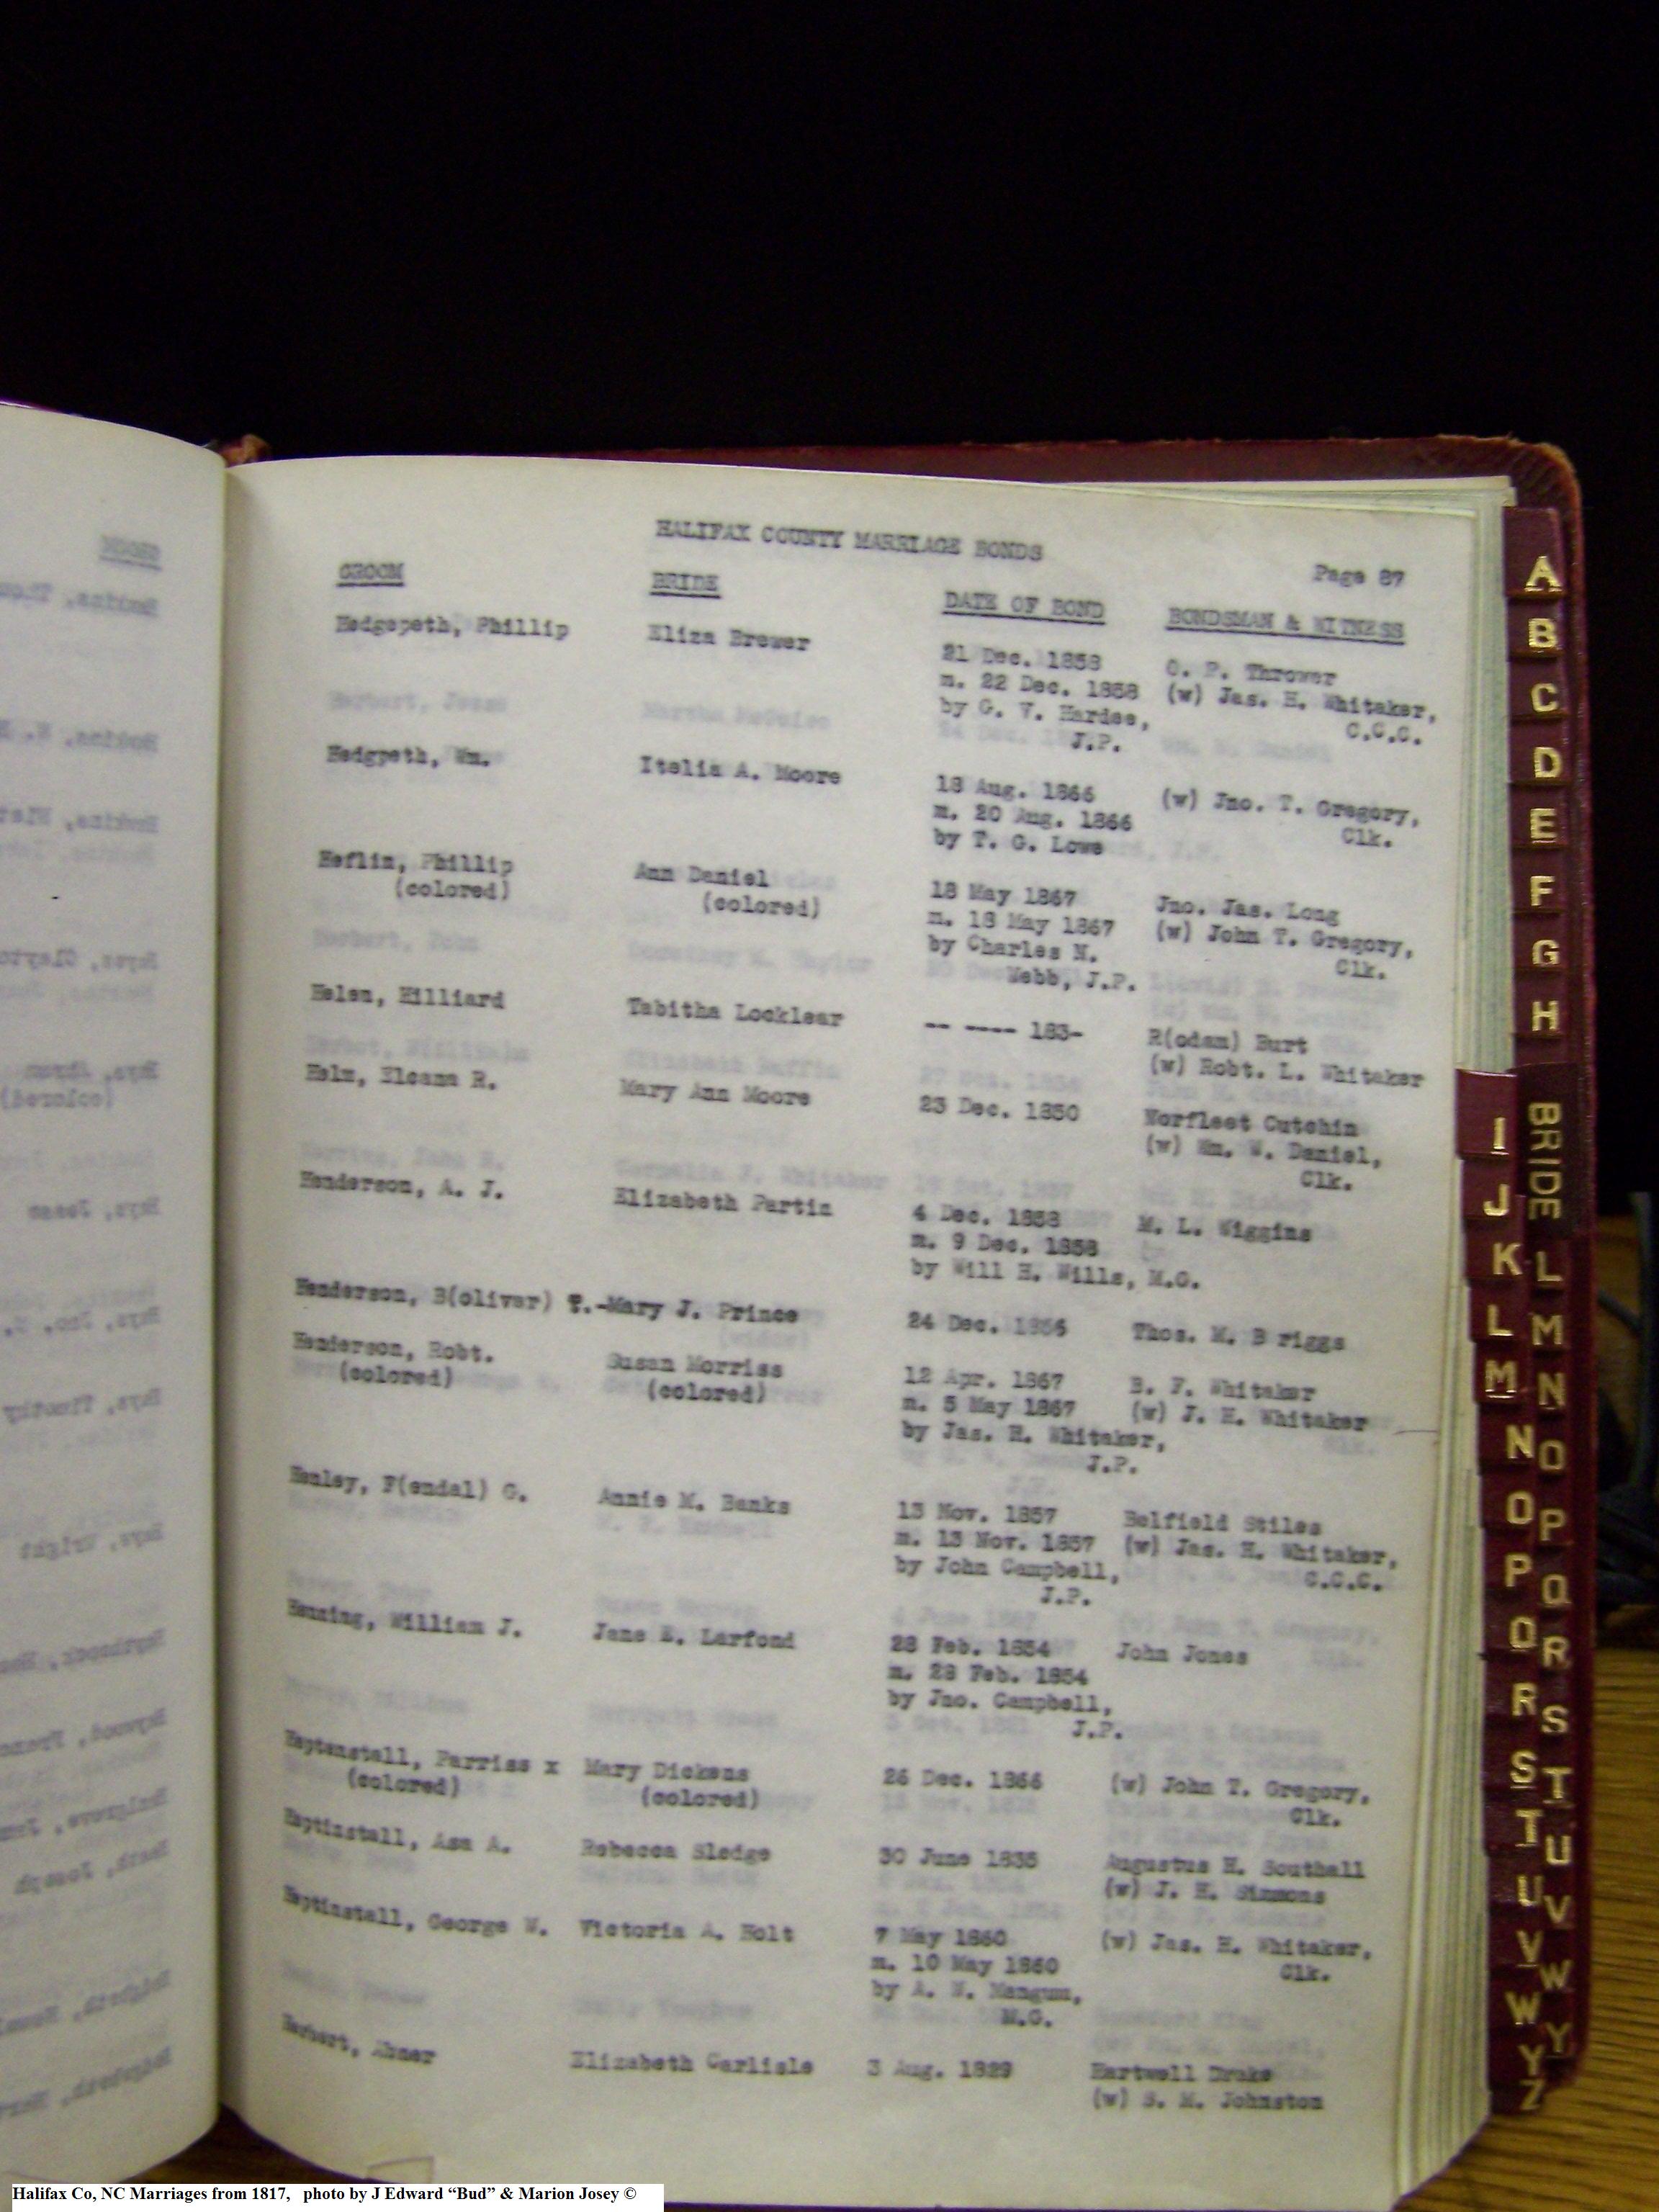 HALIFAX COUNTY MARRIAGE BONDS
Page 87
GROOM BRIDE DATE OF BOND BONDSMAN & WITNESS
Hedgepeth, Phillip Eliza Brewer 21 Dec. 1858 O. P. Thrower
m. 22 Dec. 1858 (w) Jas. H. Whitaker,
by G. V. Hardee, C.C.C.
J.P.
Hedgpeth, Wm. Itelia A. Moore 18 Aug. 1866 (w) Jno. T. Gregory,
m. 20 Aug. 1866 Clk.
by T. G. Lowe
Heflin, Phillip Ann Daniel 18 May 1867 Jno. Jas. Long
(colored) (colored) m. 18 May 1867 (w) John T. Gregory,
by Charles N. Clk.
Webb, J.P.
Helen, Hilliard Tabitha Locklear -- ---- 183- R(odam) Burt
(w) Robt. L. Whitaker
Helm, Eleana R. Mary Ann Moore 23 Dec. 1850 Norfleet Cutchin
(w) Wm. W. Daniel,
Clk.
Henderson, A. J. Elizabeth Partin 4 Dec. 1858 M. L. Wiggins
m. 9 Dec. 1858
by Will H. Wills, M.G.
Henderson, B(oliver) T.-Mary J. Prince 24 Dec. 1856 Thos. M. B riggs
Henderson, Robt. Susan Morriss 12 Apr. 1867 B. F. Whitaker
(colored) (colored) m. 5 May 1867 (w) J. H. Whitaker
by Jas. H. Whitaker,
J.P.
Henley, F(endal) G. Annie M. Banks 13 Nov. 1857 Belfield Stiles
m. 13 Nov. 1857 (w) Jas. H. Whitaker,
by John Campbell, C.C.C.
J.P.
Henning, William J. Jane E. Larfond 28 Feb. 1854 John Jones
m. 28 Feb. 1854
by Jno. Campbell,
J.P.
Heptenstall, Parriss x Mary Dickens 26 Dec. 1866 (w) John T. Gregory,
(colored) (colored) Clk.
Heptinstall, Asa A. Rebecca Sledge 30 June 1835 Augustus H. Southall
(w) J. H. Simmons
Heptinstall, George W. Victoria A. Holt 7 May 1860 (w) Jas. H. Whitaker,
m. 10 May 1860 Clk.
by A. N. Mangum,
M.G.
Herbert, Abner Elizabeth Carlisle 3 Aug. 1829 Hartwell Drake
(w) S. M. Johnston
A
B
C
D
E
F
G
H
BRIDE
I
J
K
L
L
M
M
N
N
O
O
P
P
Q
Q
R
R
S
S
T
T
U
U
V
V
W
W
Y
Y
Z
Halifax Co, NC Marriages from 1817, photo by J Edward “Bud” & Marion Josey ©